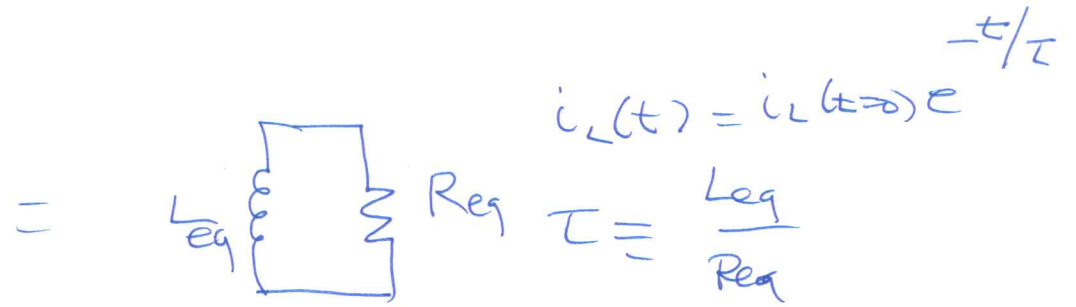 i_L(t) = i_L(t=0) e^{-t/τ}
= L_eq R_eq τ ≡ L_eq / R_eq